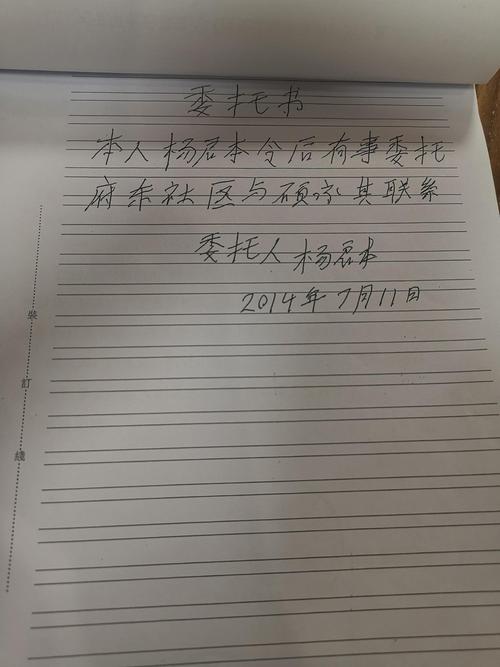 委托书
本人杨君本今后有事委托
府东社区与硕家其联系
委托人 杨君本
2014年7月11日
装
訂
綫